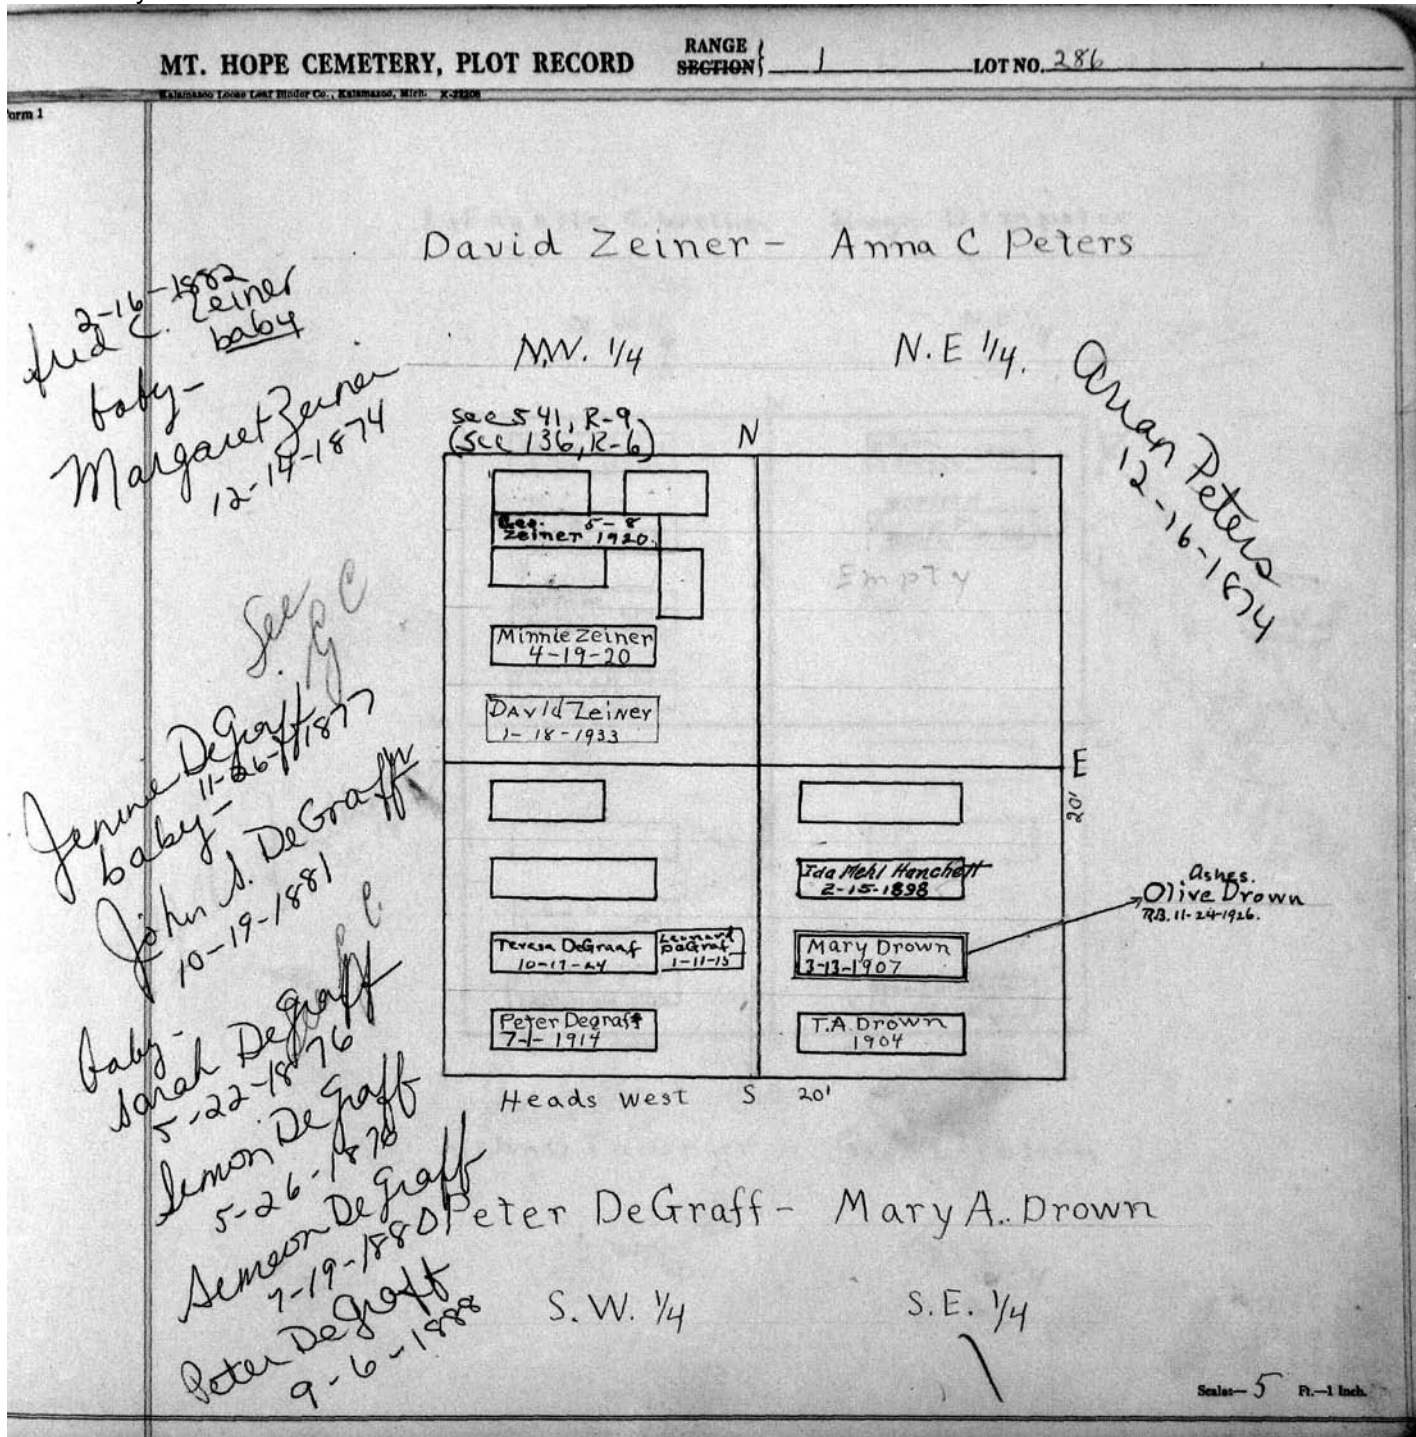 MT. HOPE CEMETERY, PLOT RECORD
RANGE
SECTION 1
LOT NO. 286
Kalamazoo Loose Leaf Binder Co., Kalamazoo, Mich.
Form 1
David Zeiner - Anna C Peters
2-16-1882
Fred C. Zeiner
baby
baby-
Margaret Zeiner
12-14-1874
N.W. 1/4
N.E 1/4.
Arian Peters
12-16-1874
see 541, R-9
(see 136, R-6)
N
Geo. 5-8
Zeiner 1920.
Empty
See
G C
Minnie Zeiner
4-19-20
David Zeiner
1-18-1933
E
20'
Jennie DeGraff
11-26-1877
baby-
John S. DeGraff
10-19-1881
Ida Mehl Hanchett
2-15-1898
Ashes.
Olive Drown
R.B. 11-24-1926.
Teresa DeGraaf
10-17-24
Leonard
DeGraf
1-11-15
Mary Drown
3-13-1907
Peter Degraft
7-1-1914
T.A. Drown
1904
baby-
Sarah DeGraff
5-22-1876
Heads west S 20'
Simon DeGraff
5-26-1870
Simeon DeGraff
7-19-1880
Peter DeGraff
9-6-1888
Peter DeGraff - Mary A. Drown
S.W. 1/4
S.E. 1/4
Scale:- 5 Ft.-1 Inch.